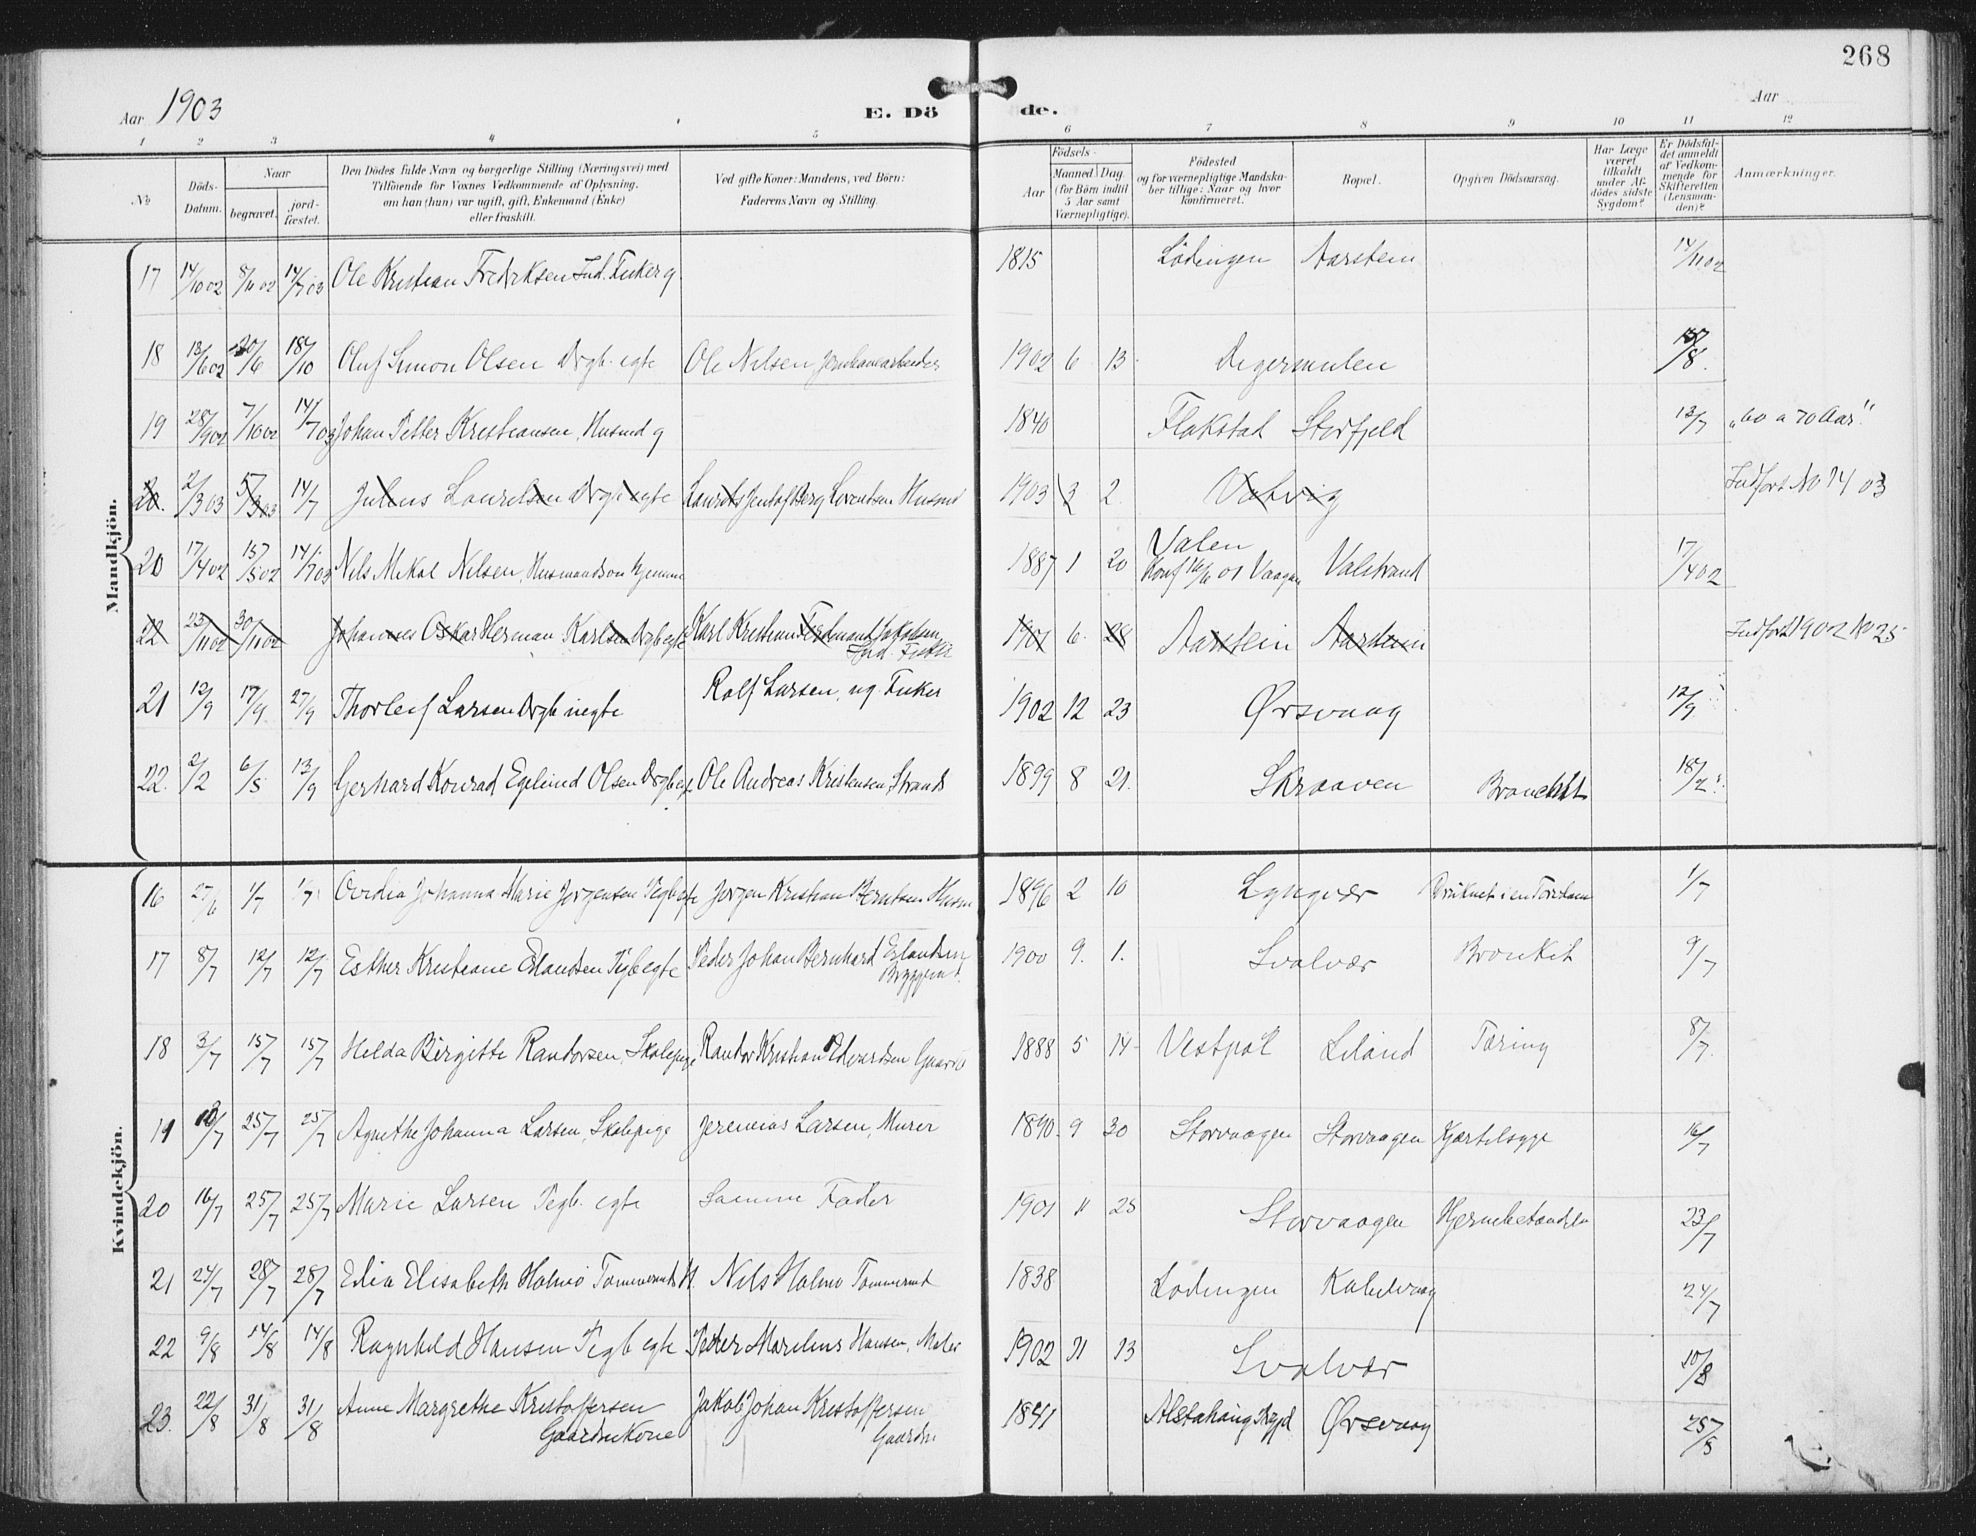 268
Aar 1903
E. Dö de.
Aar
1 2 3 4 5 6 7 8 9 10 11 12
No
Döds-Datum.
Naar
begravet.
jord-fæstet.
Den Dödes fulde Navn og borgerlige Stilling (Næringsvei) med
Tilföiende for Voxnes Vedkommende af Oplysning,
om han (hun) var ugift, gift, Enkemand (Enke)
eller fraskilt.
Ved gifte Koner: Mandens, ved Börn:
Faderens Navn og Stilling.
Födsels-
Aar
Maaned. Dag.
(for Börn indtil
5 Aar samt
Værnepligtige).
Födested
og for værnepligtige Mandska-
ber tillige: Naar og hvor
konfirmeret.
Bopæl.
Opgiven Dödsaarsag.
Har Læge
været
tilkaldt
under Af-
dödes sidste
Sygdom?
Er Dödsfal-
det anmeldt
af Vedkom-
mende for
Skifteretten
(Lensman-
den)?
Anmærkninger.
Mandkjön.
17 14/10 02 8/11 02 14/7 03 Ole Kristian Fredriksen Ind. Fisker g 1815 Lödingen Aarstein 14/11 02
18 13/6 02 20/6 18/10 Oluf Simon Olsen Drgb. egte Ole Nilsen 1902 6 13 Digermulen /8.
19 28/9 02 7/10 02 14/7 03 Johan Petter Kristiansen, Husmd g 1840 Flakstad Storfjeld 13/7 "60 a 70 Aar"
20. 2/3 03 5/3 03 14/7 Julius Lauritsen Drgb egte Laurits Jentoft Berg Lorentsen Husmd 1903 3 2 Vatvig Indfört No 14 03
20 17/4 02 15/5 02 14/7 03 Nils Mikal Nilsen, Husmandsön hjemme 1887 1 20 Valen
Konf 16/6 01 Vaagan Valstrand 17/4 02
22 23/11 02 30/11 02 Johannes Oskar Herman Karlsen Drgb egte Karl Kristian Ferdinand Jakobsen
Ind. Fisker 1901 6 28 Aarstein Aarstein Indfört 1902 No 25
21 12/9 17/9 27/9 Thorleif Larsen Drgb uegte Rolf Larsen, ug. Fisker 1902 12 23 Ørsvaag 12/9
22. 2/2 6/5 13/9 Gerhard Konrad Egelund Olsen Drgb eg. Ole Andreas Kristensen, Strands 1899 8 21. Skraaven 18/2
Kvindekjön.
16 27/6 1/7 1/7 Ovidia Johanna Marie Jörgensen Pigb egte Jörgen Kristian Berntsen Husm 1896 2 10 Lyngvær Druknet i en 1/7
17 8/7 12/7 12/7 Esther Kristiane Erlandsen Pigb egte Peder Johan Bernhard Erlandsen
Byggmd. 1900 9. 1. Svolvær Bronkit 9/7
18 3/7 15/7 15/7 Helda Birgitte Randorsen, Skolepige Randor Kristian Edvardsen Gaardb 1888 5 14 Vestpol Liland Tæring 8/7.
19 10/7 25/7 25/7 Agnethe Johanna Larsen, Skolepige Jeremias Larsen, Murer 1890. 9 30 Storvaagen Storvaagen Kjertelsyge 16/7
20 16/7 25/7 25/7 Marie Larsen Pigb. egte Samme Fader 1901 11 25 Storvaagen Hjernebetændelse 23/7
21 24/7 28/7 28/7 Elia Elisabeth Holmö Tömmermds K. Nils Holmö Tömmermd 1838 Lödingen Kabelvaag 24/7
22 9/8 14/8 14/8 Ragnhild Hansen Pigb egte Peter Marelius Hansen, Maler 1902 11 13 Svolvær 10/8
23. 22/8 31/8 31/8 Anne Margrethe Kristoffersen
Gaardmkone Jakob Johan Kristoffersen
Gaardm 1841 Alstahaug Ørsvaag 25/8